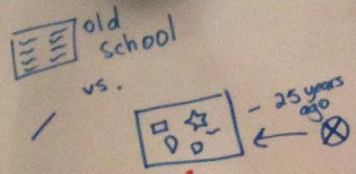 old
school
vs.
- 25 years
ago